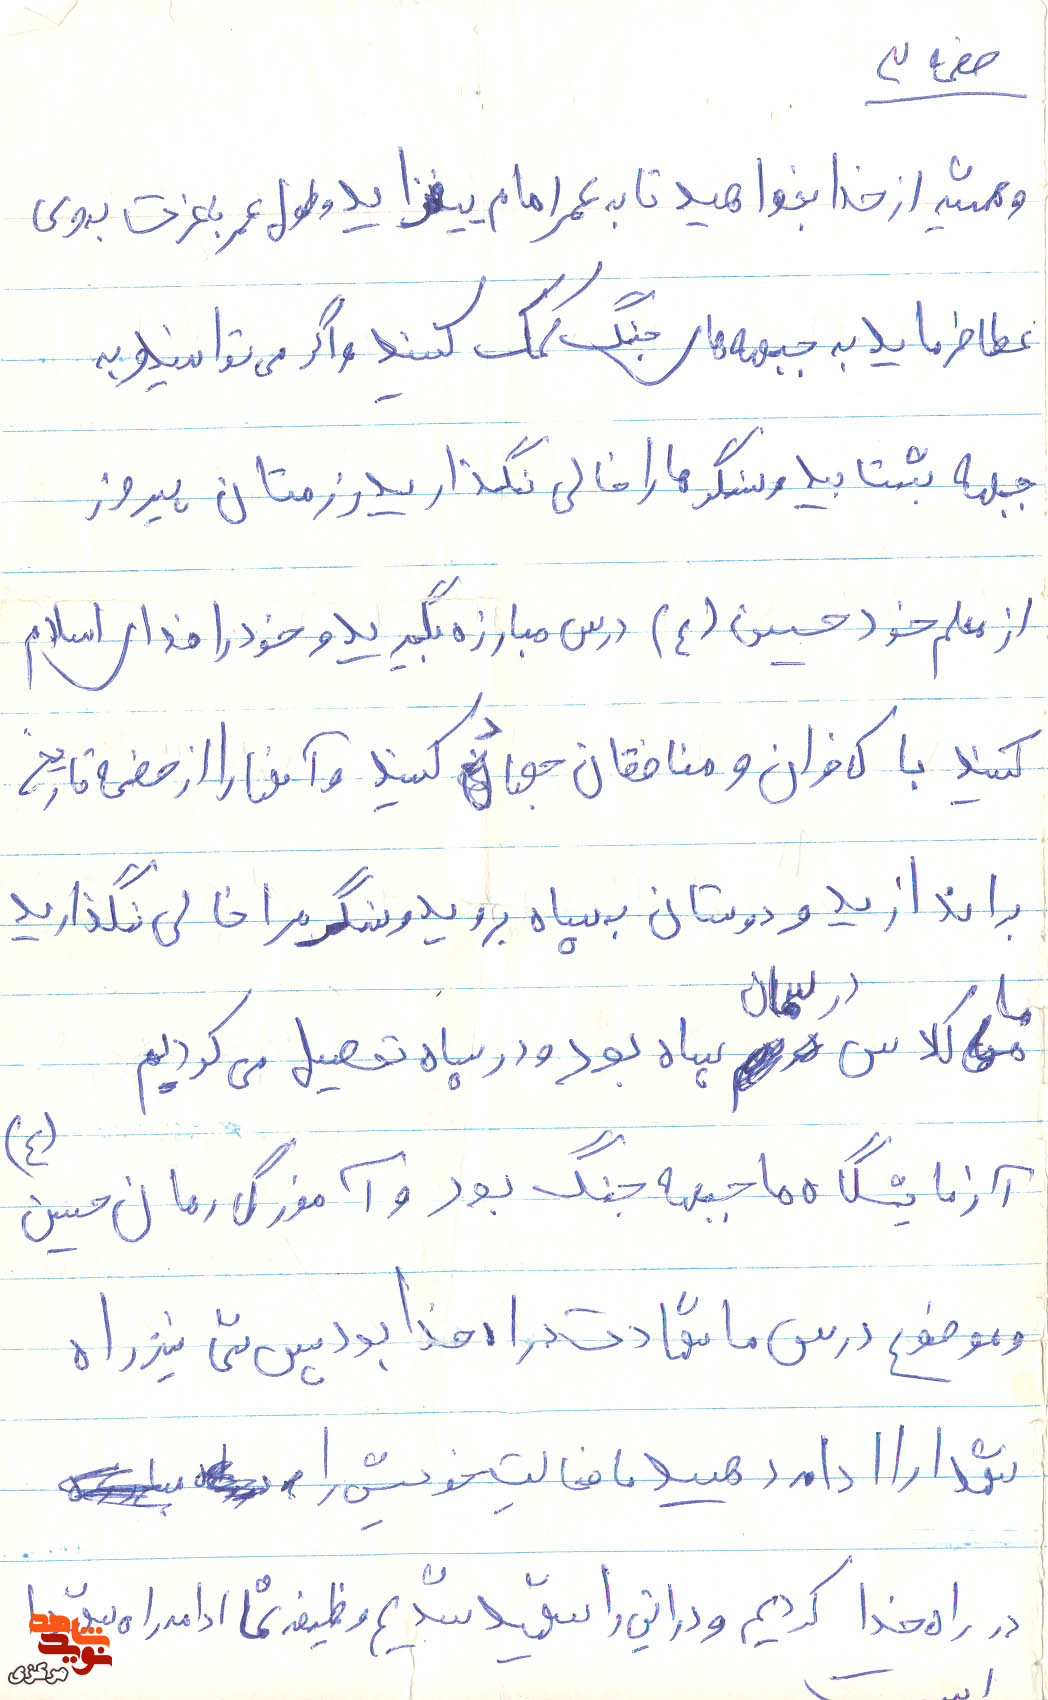 صفحه ۳
و همیشه از خدا بخواهید تا به عمر امام بیفزاید و طول عمر با عزت بوی
عطا فرماید به جبهه های جنگ کمک کنید و اگر می توانید به
جبهه بشتابید و سنگرها را خالی نگذارید رزمتان پیروز
از معلم خود حسین (ع) درس مبارزه بگیرید و خود را فدای اسلام
کنید با کافران و منافقان جهاد کنید و آنها را از صفحه تاریخ
براندازید و دوستان به سپاه بروید و سنگر مرا خالی نگذارید
ما کلاس درسمان سپاه بود و در سپاه تحصیل می کردیم
آزمایشگاه ما جبهه جنگ بود و آموزگارمان حسین (ع)
و موضوع درس ما شهادت در راه خدا بود پس شما نیز راه
شهدا را ادامه دهید ما فعالیت خویش را
در راه خدا کردیم و در این راه شهید شدیم وظیفه شما ادامه راه شهدا
است
نوید شاهد
مرکزی